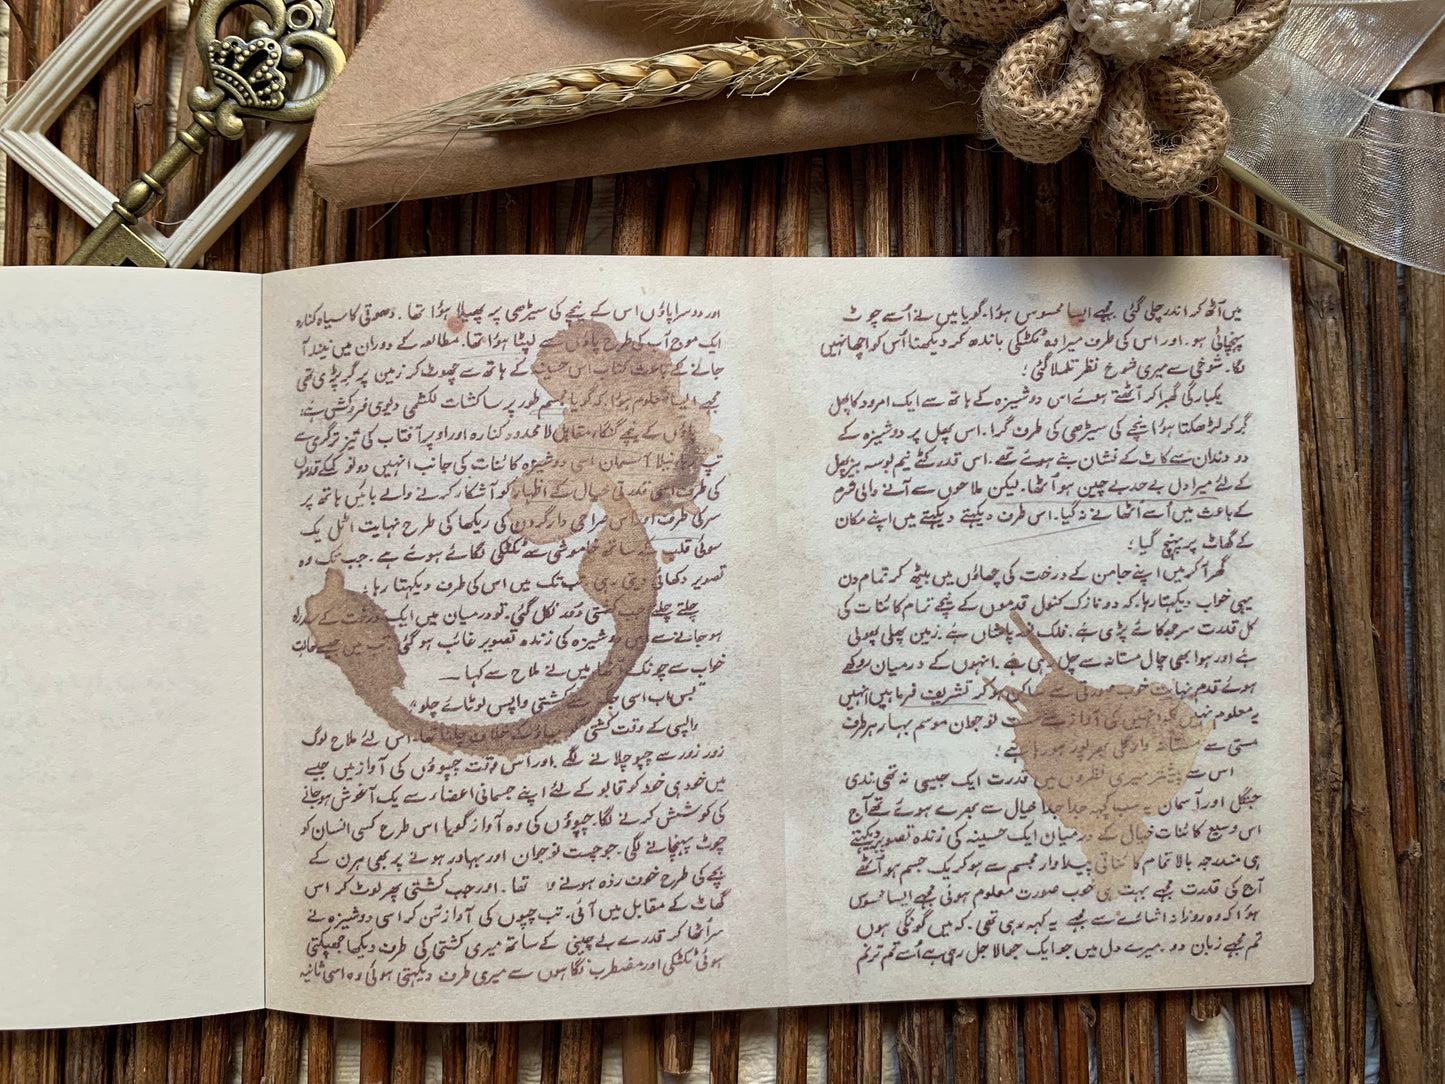 اور دوسرا پاؤں اس کے نیچے کی سیڑھی پر پھیلا ہؤا تھا۔ دھوتی کا سیاہ کنارہ
ایک موج آب کی طرح پاؤں سے لپٹا ہؤا تھا۔ مطالعہ کے دوران میں نیند آ
جانے کے باعث کتاب اس حسینہ کے ہاتھ سے چھوٹ کر زمین پر گر پڑی تھی
مجھے ایسا معلوم ہؤا کہ گویا مجسم طور پر ساکشات لکشمی دلوی فروکش ہے؛
پاؤں کے نیچے گنگا، مقابل لا محدود کنارہ اور اوپر آفتاب کی تیز تر گرمی سے
تپ رہا نیلا آسمان اسی دوشیزہ کائنات کی جانب انہیں دو نو کے قدموں
کی طرف اسی قدرتی خیال کے اظہار کو آشکار کرنے والے بائیں ہاتھ پر
سر کی طرف اور اس صراحی دار گردن کی ریکھا کی طرح نہایت اٹل یک
سوئی قلب کے ساتھ خاموشی سے ٹکٹکی لگائے ہوئے ہے۔ جب تک وہ
تصویر دکھائی دیتی رہی تب تک میں اس کی طرف دیکھتا رہا؛
چلتے چلتے جب کشتی دُور نکل گئی۔ تو درمیان میں ایک درخت کے سدراہ
ہو جانے سے اس دوشیزہ کی زندہ تصویر غائب ہو گئی تب میں جیسے حالت
خواب سے چونک اٹھا میں نے ملاح سے کہا ــ
"بس اب اسی جگہ سے کشتی واپس لوٹائے چلو"
واپسی کے وقت کشتی بہاؤ کے خلاف جانا تھا۔ اس لئے ملاح لوگ
زور زور سے چپو چلانے لگے۔ اور اس وقت چپوؤں کی آواز میں جیسے
میں خود ہی خود کو قابو کے لئے اپنے جسمانی اعضاء سے یک آغوش ہو جانے
کی کوشش کرنے لگا۔ چپوؤں کی وہ آواز گویا اس طرح کسی انسان کو
چوٹ پہنچانے لگی۔ جو چست نوجوان اور بہادر ہونے پر بھی ہرن کے
بچے کی طرح خوف زدہ ہونے والا تھا۔ اور جب کشتی پھر لوٹ کر اس
گھاٹ کے مقابل میں آئی۔ تب چپوں کی آواز سُن کر اسی دوشیزہ نے
سر اُٹھا کر قدرے بے چینی کے ساتھ میری کشتی کی طرف دیکھا جھپکتی
ہوئی ٹکٹکی اور مضطرب نگاہوں سے میری طرف دیکھتی ہوئی وہ اسی ثانیہ
میں اُٹھ کر اندر چلی گئی مجھے ایسا محسوس ہؤا۔ گویا میں نے اُسے چوٹ
پہنچائی ہو۔ اور اس کی طرف میرا وہ ٹکٹکی باندھ کر دیکھنا اُس کو اچھا نہیں
لگا۔ شوخی سے میری شوخ نظر تلملا گئی؛
یکبارگی گھبرا کر اُٹھتے ہوئے اس دوشیزہ کے ہاتھ سے ایک امرود کا پھل
گر کر لڑھکتا ہؤا نیچے کی سیڑھی کی طرف گرا۔ اس پھل پر دوشیزہ کے
دو دندان سے کاٹ کے نشان بنے ہوئے تھے۔ اس قدر کٹے نیم بوسہ بیز پھل
کے لئے میرا دل بے حد بے چین ہو اُٹھا۔ لیکن ملاحوں سے آنے والی شرم
کے باعث میں اُسے اُٹھا نے نہ گیا۔ اس طرف دیکھتے دیکھتے میں اپنے مکان
کے گھاٹ پر پہنچ گیا؛
گھر آ کر میں اپنے جامن کے درخت کی چھاؤں میں بیٹھ کر تمام دن
یہی خواب دیکھتا رہا۔ کہ دو نازک کنول قدموں کے نیچے تمام کائنات کی
کل قدرت سر جھکائے پڑی ہے۔ فلک پاشاں ہے۔ زمین پھلی پھولی
ہے اور ہوا بھی چال مستانہ سے چل رہی ہے۔ انہوں کے درمیان روکھے
ہوئے قدم نہایت خوب صورتی سے ساکن ہو کر تشریف فرما ہیں انہیں
یہ معلوم نہیں کہ انہیں کی آواز سے مست نوجوان موسم بہار ہر طرف
مستی سے مستانہ وار کلی بھر پور ہو رہا ہے؛
اس سے پیشتر میری نظروں میں قدرت ایک جیسی نہ تھی۔ ندی
جنگل اور آسمان یہ سب کچھ جدا جدا خیال سے بھرے ہوئے تھے آج
اس وسیع کائنات خیال کے درمیان ایک حسینہ کی زندہ تصویر دیکھتے
ہی مندرجہ بالا تمام کائناتی پیلا وار مجسم سے ہو کر یک جسم ہو اُٹھے
آج کی قدرت مجھے بہت ہی خوب صورت معلوم ہوئی مجھے ایسا محسوس
ہؤا کہ وہ روزانہ اشارے سے مجھے یہ کہہ رہی تھی۔ کہ میں گونگی ہوں
تم مجھے زبان دو۔ میرے دل میں جو ایک جھالا جل رہی ہے اُسے تم ترنم